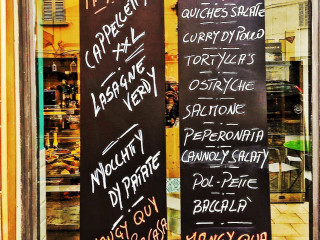 CAPPELLETTY
XXL
LASAGNE
VERDY
NYOCCHITY
DY PATATE
MANGY QUY
CASA
QUICHES SALATE
CURRY DY POLLO
TORTYLLA'S
OSTRYCHE
SALITONE
PEPERONATA
CANNOLY SALATY
POL-PETTE
BACCALÀ
MANGY QUA